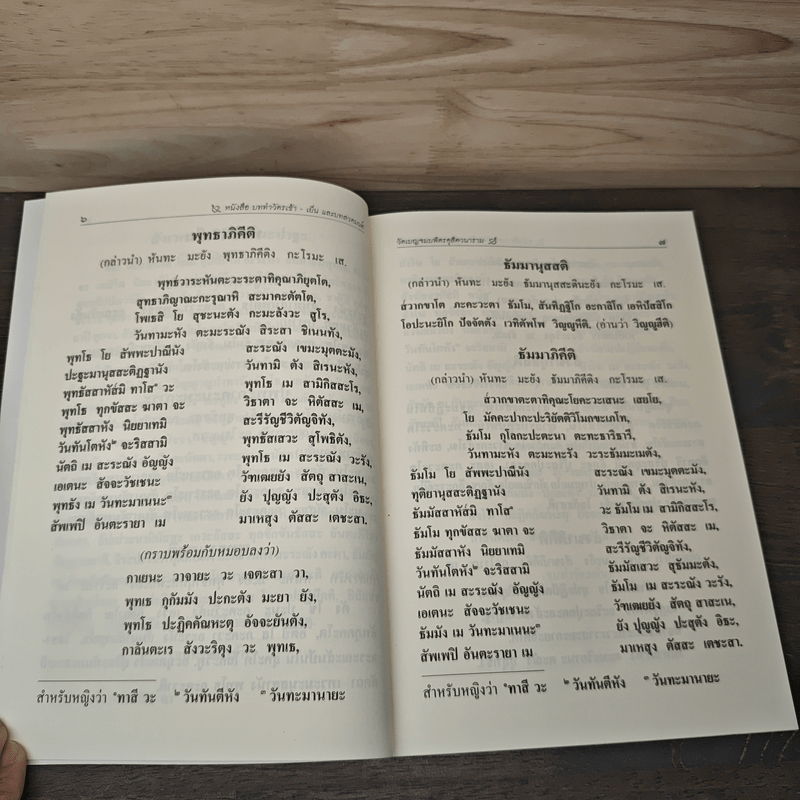 ๖
หนังสือ บททำวัตรเช้า - เย็น และบทสวดมนต์
พุทธาภิคีติ
(กล่าวนำ) หันทะ มะยัง พุทธาภิคีติง กะโรมะ เส.
พุทธ์วาระหันตะวะระตาทิคุณาภิยุตโต,
สุทธาภิญาณะกะรุณาหิ สะมาคะตัตโต,
โพเธสิ โย สุชะนะตัง กะมะลังวะ สูโร,
วันทามะหัง ตะมะระณัง สิระสา ชิเนนทัง,
พุทโธ โย สัพพะปาณีนัง สะระณัง เขมะมุตตะมัง,
ปะฐะมานุสสะติฏฐานัง วันทามิ ตัง สิเรนะหัง,
พุทธัสสาหัสมิ ทาโส๑ วะ พุทโธ เม สามิกิสสะโร,
พุทโธ ทุกขัสสะ ฆาตา จะ วิธาตา จะ หิตัสสะ เม,
พุทธัสสาหัง นิยยาเทมิ สะรีรัญชีวิตัญจิทัง,
วันทันโตหัง๒ จะริสสามิ พุทธัสเสวะ สุโพธิตัง,
นัตถิ เม สะระณัง อัญญัง พุทโธ เม สะระณัง วะรัง,
เอเตนะ สัจจะวัชเชนะ วัฑเฒยยัง สัตถุ สาสะเน,
พุทธัง เม วันทะมาเนนะ๓ ยัง ปุญญัง ปะสุตัง อิธะ,
สัพเพปิ อันตะรายา เม มาเหสุง ตัสสะ เตชะสา.
(กราบพร้อมกับหมอบลงว่า)
กาเยนะ วาจายะ วะ เจตะสา วา,
พุทเธ กุกัมมัง ปะกะตัง มะยา ยัง,
พุทโธ ปะฏิคคัณหะตุ อัจจะยันตัง,
กาลันตะเร สังวะริตุง วะ พุทเธ,
สำหรับหญิงว่า ๑ทาสี วะ ๒วันทันตีหัง ๓วันทะมานายะ
วัดเบญจมบพิตรดุสิตวนาราม
๗
ธัมมานุสสติ
(กล่าวนำ) หันทะ มะยัง ธัมมานุสสะตินะยัง กะโรมะ เส.
ส๎วากขาโต ภะคะวะตา ธัมโม, สันทิฏฐิโก อะกาลิโก เอหิปัสสิโก
โอปะนะยิโก ปัจจัตตัง เวทิตัพโพ วิญญูหีติ. (อ่านว่า วิญญูฮีติ)
ธัมมาภิคีติ
(กล่าวนำ) หันทะ มะยัง ธัมมาภิคีติง กะโรมะ เส.
ส๎วากขาตะตาทิคุณะโยคะวะเสนะ เสยโย,
โย มัคคะปากะปะริยัตติวิโมกขะเภโท,
ธัมโม กุโลกะปะตะนา ตะทะธาริธารี,
วันทามะหัง ตะมะหะรัง วะระธัมมะเมตัง,
ธัมโม โย สัพพะปาณีนัง สะระณัง เขมะมุตตะมัง,
ทุติยานุสสะติฏฐานัง วันทามิ ตัง สิเรนะหัง,
ธัมมัสสาหัส๎มิ ทาโส๑ วะ ธัมโม เม สามิกิสสะโร,
ธัมโม ทุกขัสสะ ฆาตา จะ วิธาตา จะ หิตัสสะ เม,
ธัมมัสสาหัง นิยยาเทมิ สะรีรัญชีวิตัญจิทัง,
วันทันโตหัง๒ จะริสสามิ ธัมมัสเสวะ สุธัมมะตัง,
นัตถิ เม สะระณัง อัญญัง ธัมโม เม สะระณัง วะรัง,
เอเตนะ สัจจะวัชเชนะ วัฑเฒยยัง สัตถุ สาสะเน,
ธัมมัง เม วันทะมาเนนะ๓ ยัง ปุญญัง ปะสุตัง อิธะ,
สัพเพปิ อันตะรายา เม มาเหสุง ตัสสะ เตชะสา.
สำหรับหญิงว่า ๑ทาสี วะ ๒วันทันตีหัง ๓วันทะมานายะ